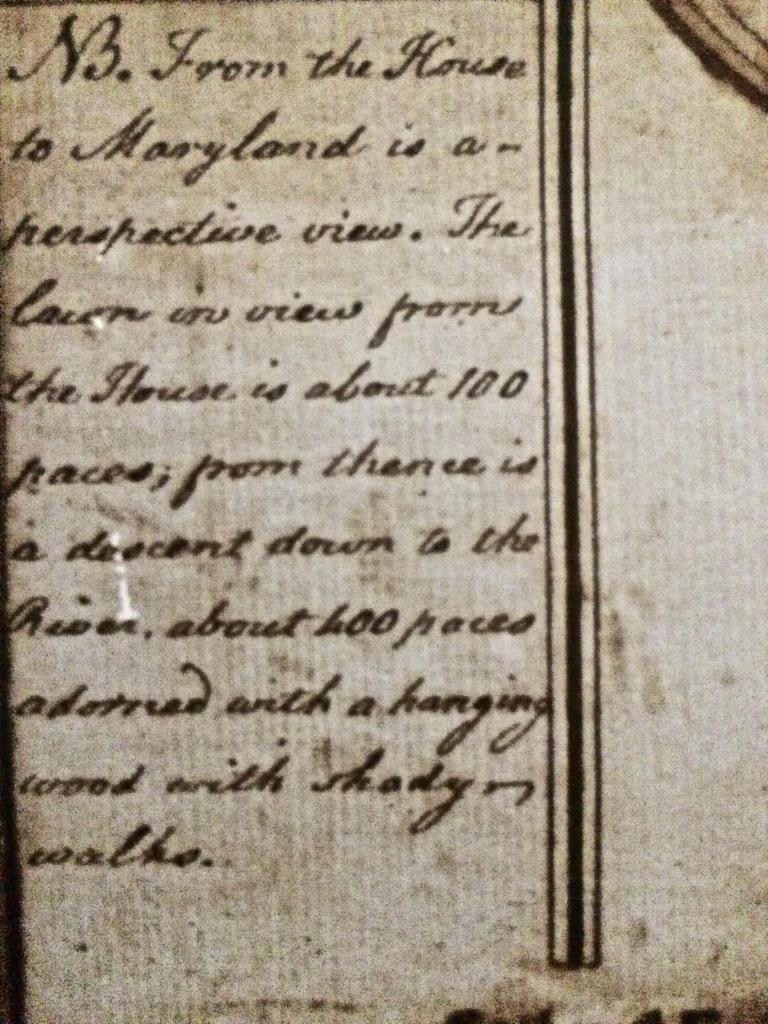 NB. From the House
to Maryland is a -
perspective view. The
lawn in view from
the House is about 100
paces; from thence is
a descent down to the
River, about 400 paces
adorned with a hanging
wood with shady
walks.